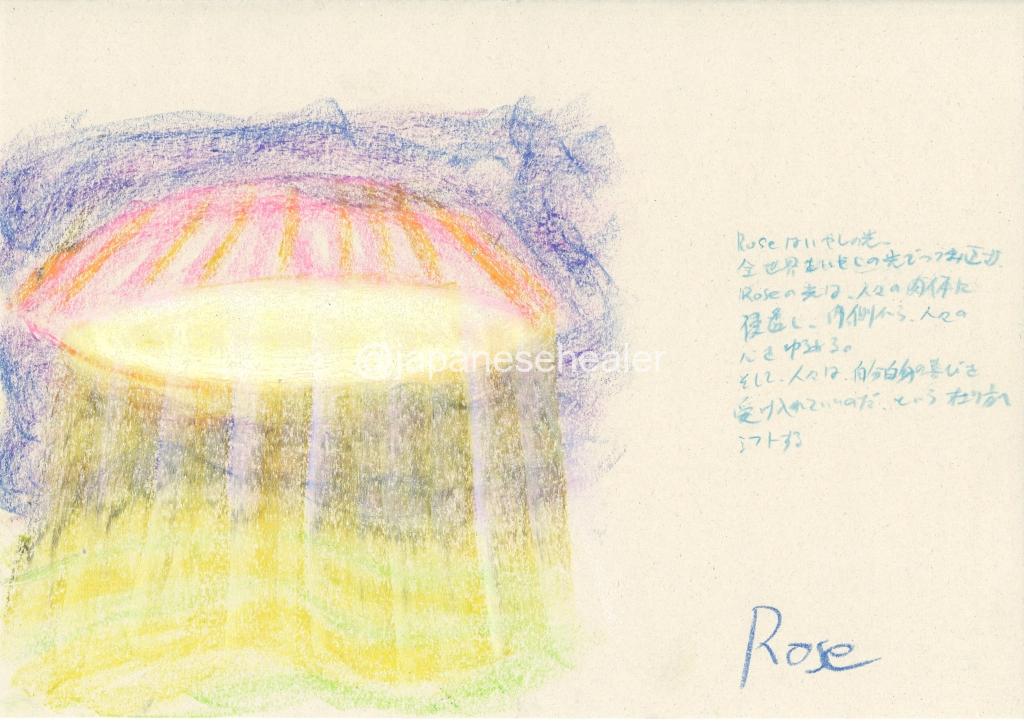 @japanesehealer
Roseはいやしの光、
全世界をいやしの光でつつみ込む、
Roseの光は、人々の肉体に
浸透し、内側から、人々の
心をゆるめる。
そして、人々は、自分自身の喜びを
受け入れていいのだ、という在り方へ
シフトする
Rose